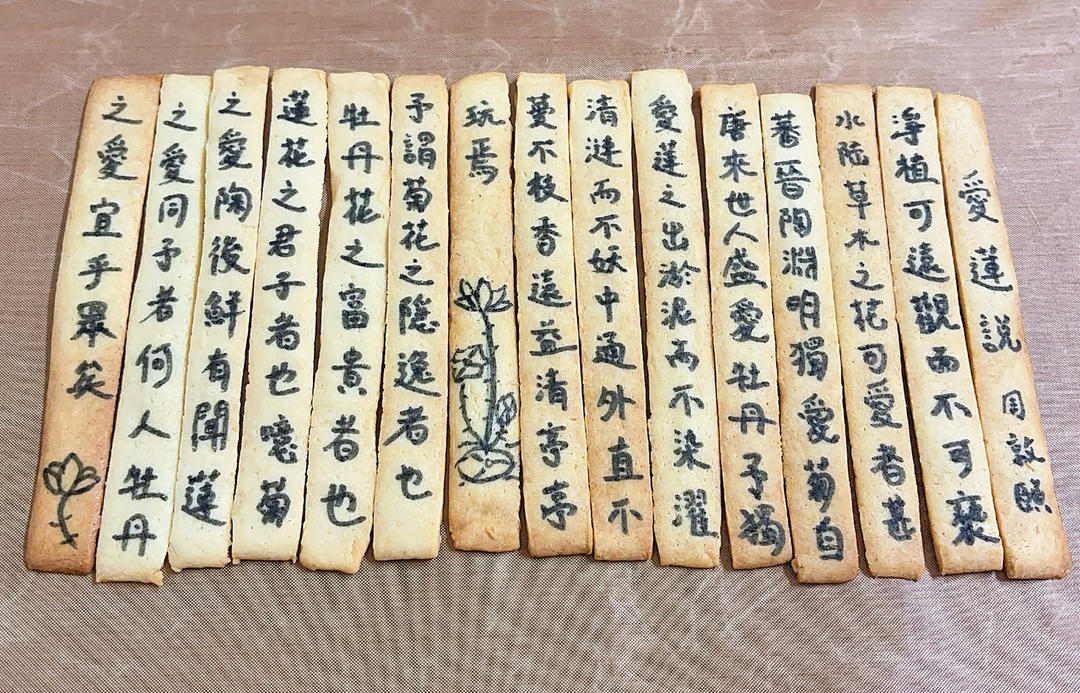 愛蓮說 周敦
淨植可遠觀而不可褻
水陸草木之花可愛者甚
蕃晉陶淵明獨愛菊自
唐來世人盛愛牡丹予獨
愛蓮之出於泥而不染濯
清漣而不妖中通外直不
蔓不枝香遠益清亭亭
玩焉
予謂菊花之隱逸者也
牡丹花之富貴者也
蓮花之君子者也噫菊
之愛陶後鮮有聞蓮
之愛同予者何人牡丹
之愛宜乎眾矣